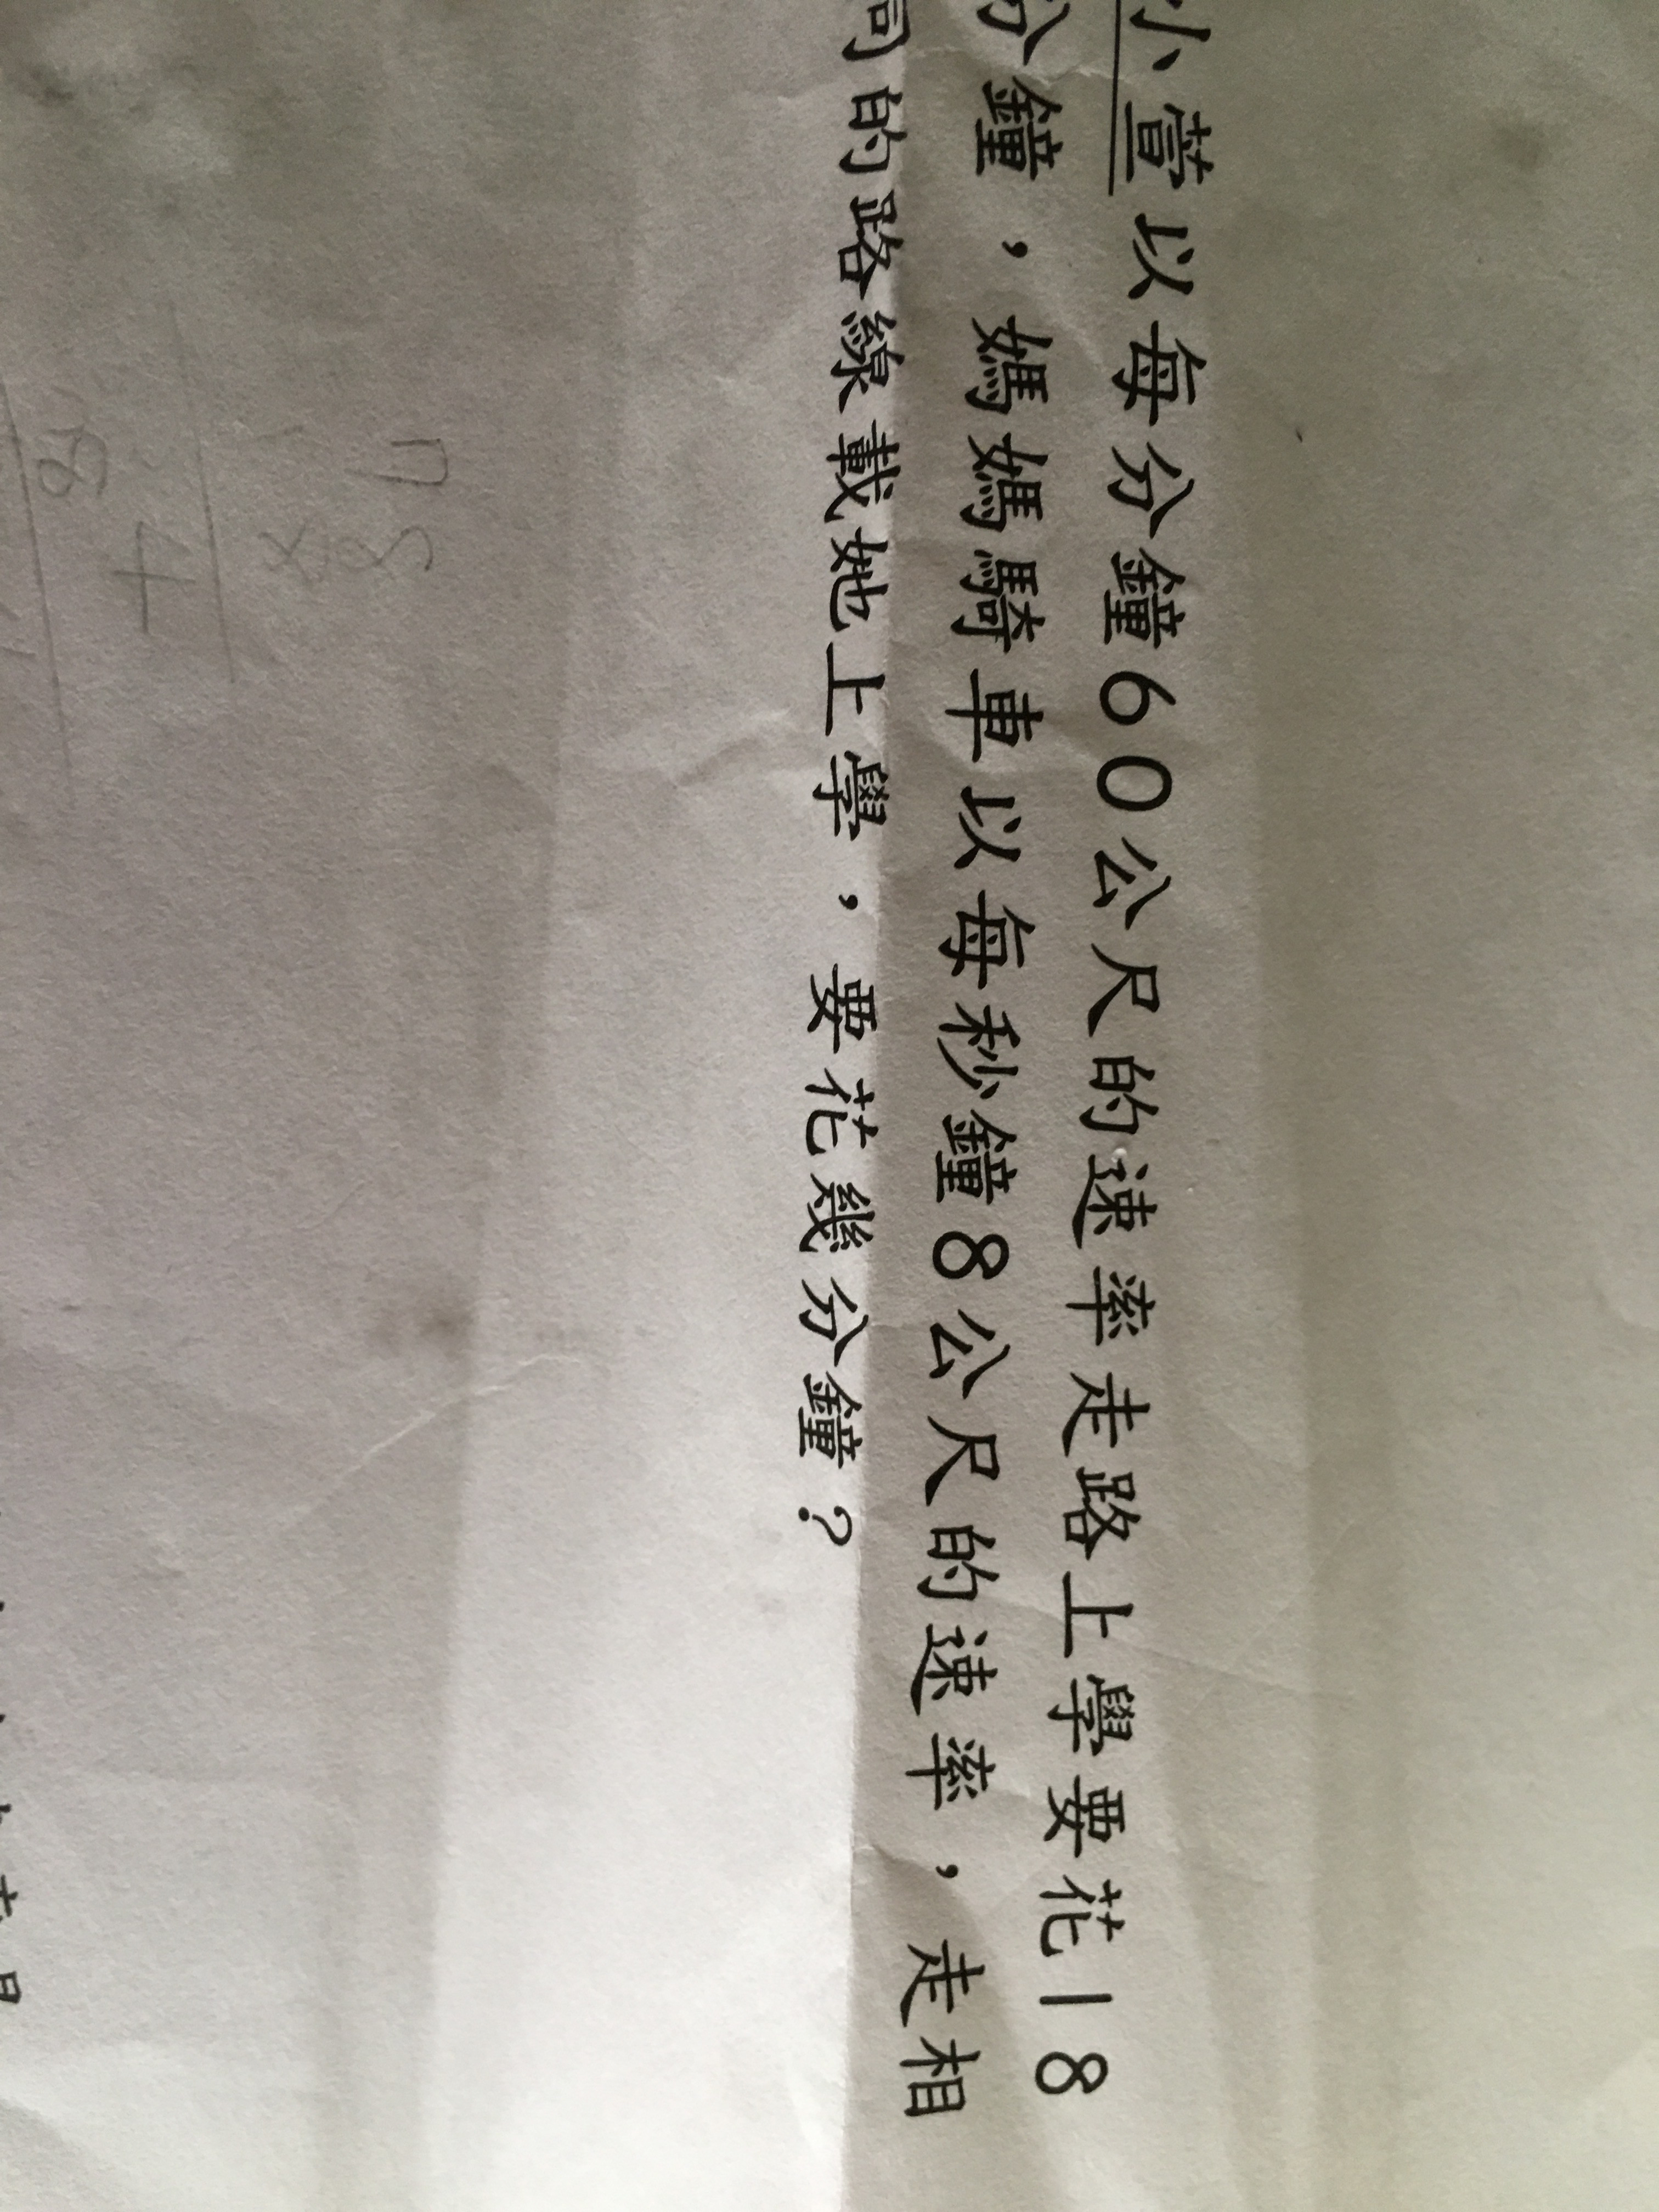 小萱以每分鐘60公尺的速率走路上學要花18
分鐘，媽媽騎車以每秒鐘8公尺的速率，走相
同的路線載她上學，要花幾分鐘？